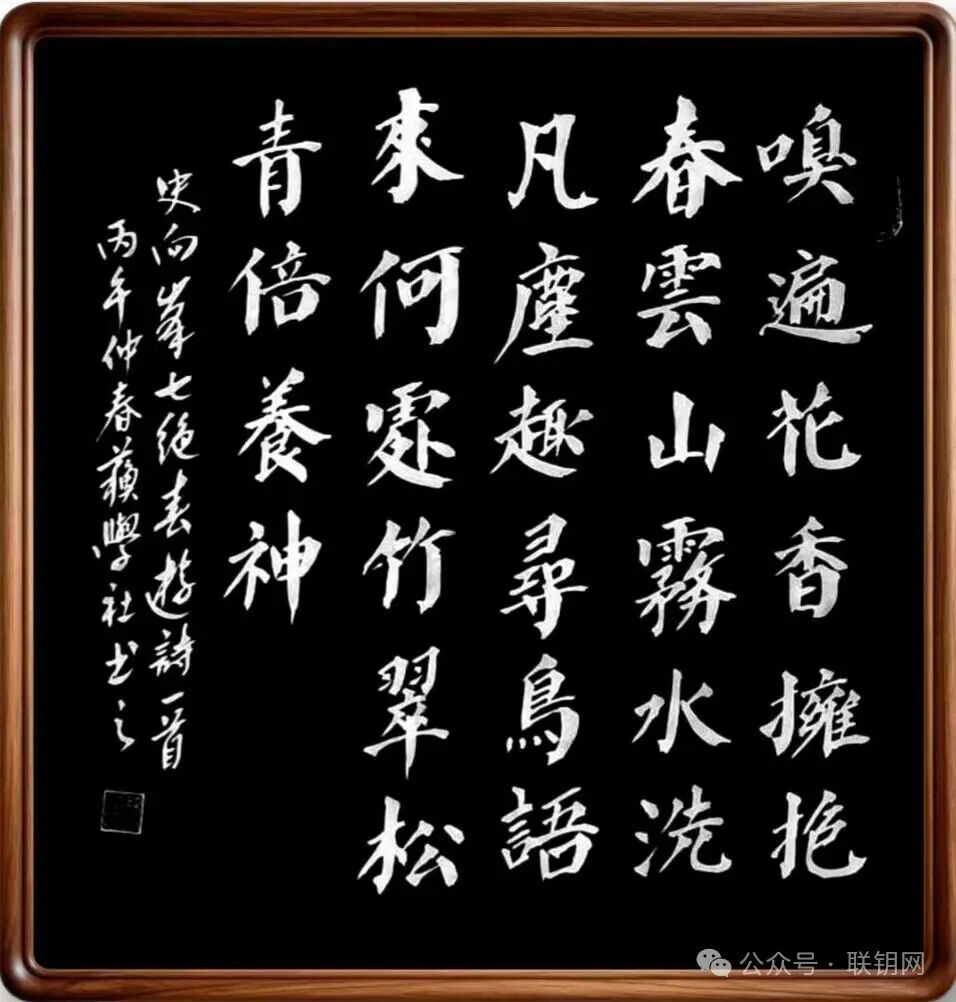 嗅遍花香擁抱
春雲山霧水洗
凡塵趣尋鳥語
來何處竹翠松
青倍養神
史向峯七绝春遊詩一首
丙午仲春蘋學社书之
公众号·联钥网